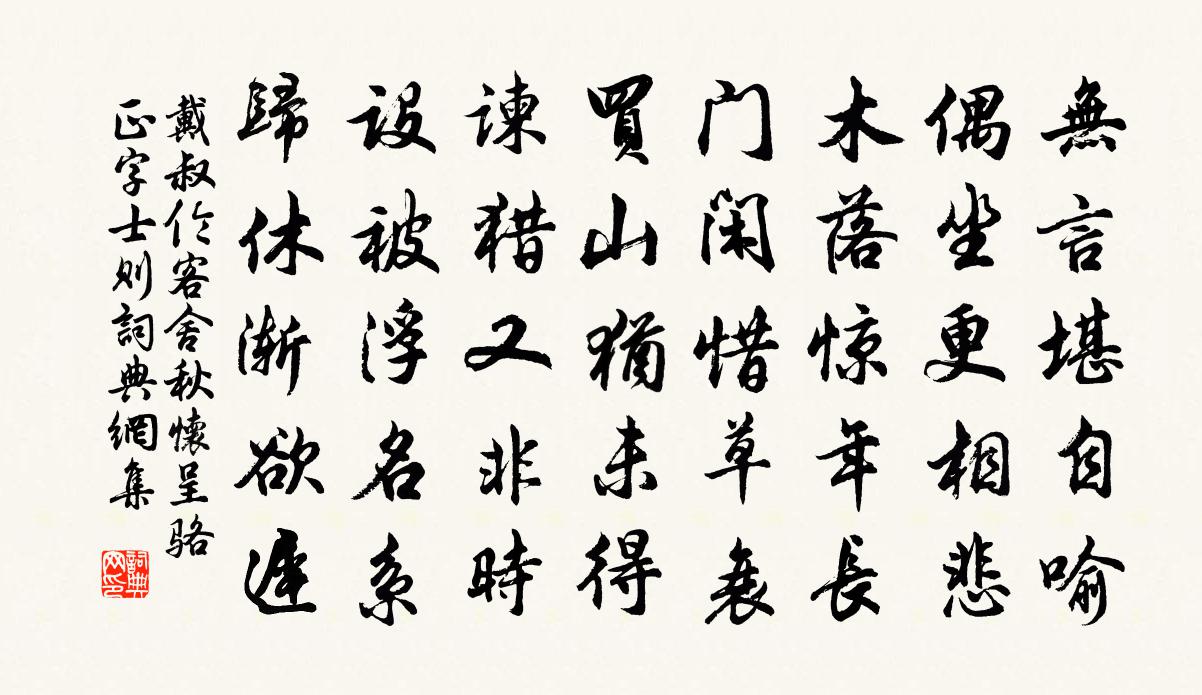 無言堪自喻
偶坐更相悲
木落惊年長
门闲惜草衰
買山猶未得
諫猎又非時
設被浮名系
歸休渐欲遲
戴叔伦客舍秋懷呈骆
正字士则詞典網集
詞典網印